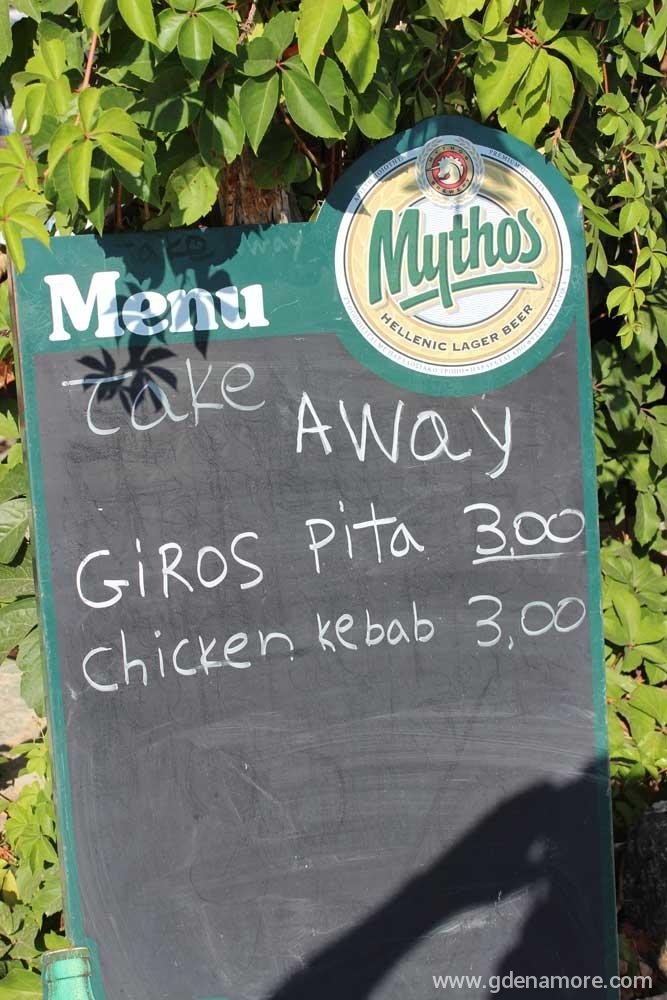 Take Away
Mythos
HELLENIC LAGER BEER
Menu
Take
AWay
GiROS Pita 3,00
chicken kebab 3,00
www.gdenamore.com